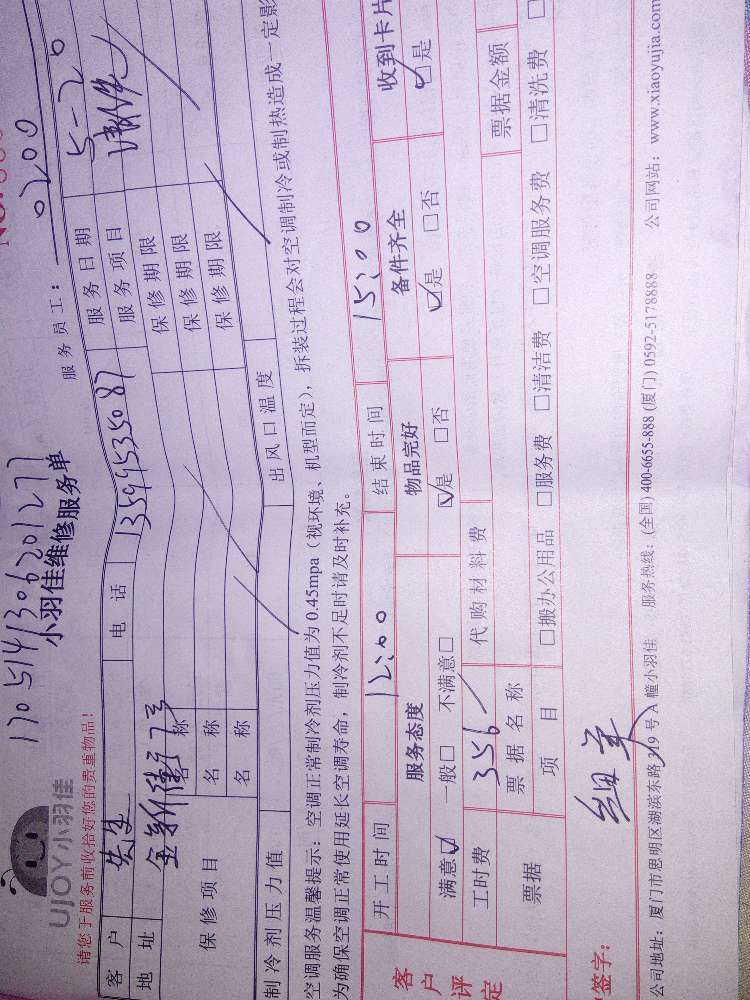 170514130620127
UJOY小羽佳
小羽佳维修服务单
请您于服务前收拾好您的贵重物品!
服务员工: 0200
客户 先生 电话 13599535087 服务日期 5-20
地址 服务项目
保修项目 名称 保修期限
名称 保修期限
名称 保修期限
制冷剂压力值 出风口温度
空调服务温馨提示:空调正常制冷剂压力值为0.45mpa(视环境、机型而定),拆装过程会对空调制冷或制热造成一定影
为确保空调正常使用延长空调寿命,制冷剂不足时请及时补充。
客户评定 开工时间 12:00 结束时间 15:00
服务态度 物品完好 备件齐全 收到卡片
满意☑ 一般□ 不满意□ ☑是 □否 ☑是 □否 ☑是
工时费 356 代购材料费
票据 票据名称 票据金额
项目 □搬办公用品 □服务费 □清洁费 □空调服务费 □清洗费 □
签字:
公司地址:厦门市思明区湖滨东路319号A幢小羽佳 服务热线:(全国)400-6655-888 (厦门) 0592-5178888 公司网站:www.xiaoyujia.com